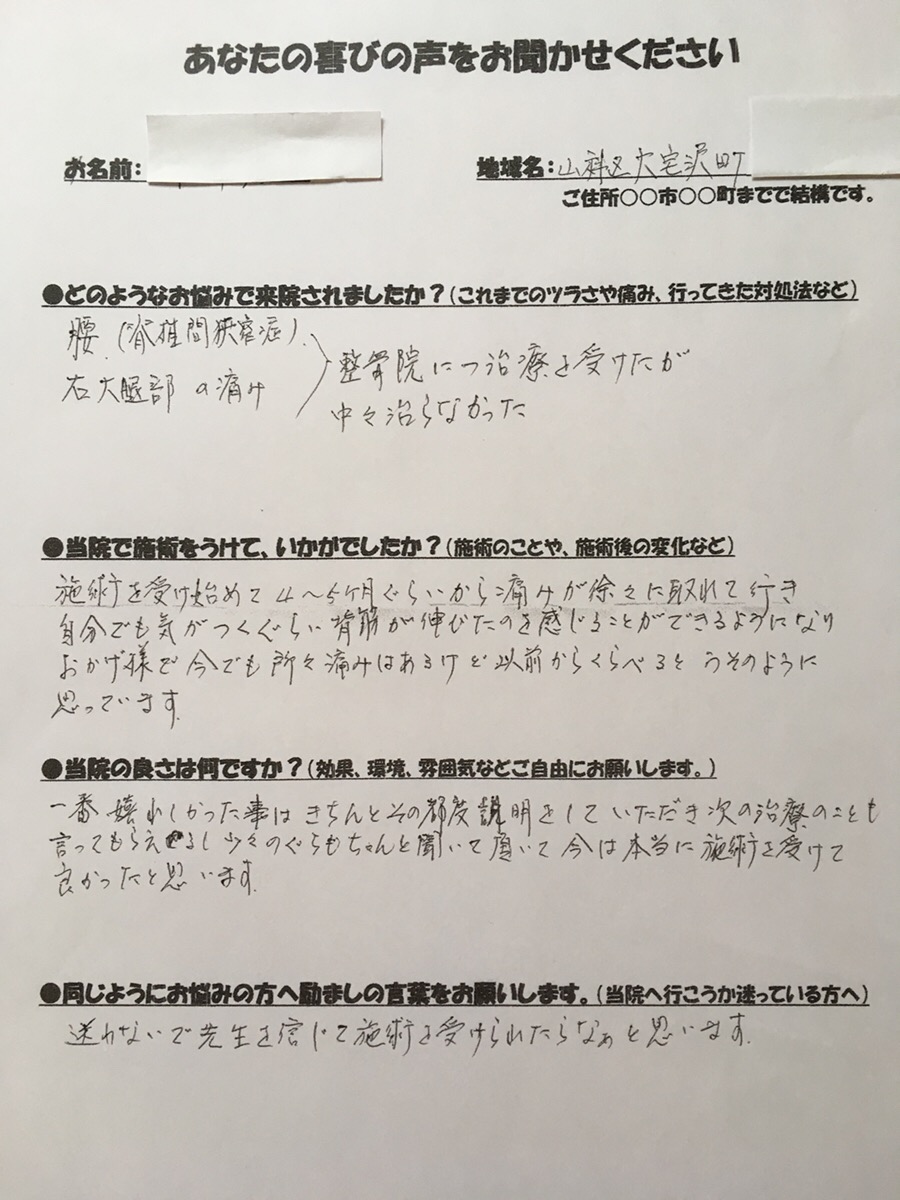 あなたの喜びの声をお聞かせください
お名前:
地域名:山科区大宅沢町
ご住所○○市○○町までで結構です。
●どのようなお悩みで来院されましたか?(これまでのツラさや痛み、行ってきた対処法など)
腰(脊椎間狭窄症)
右大腿部の痛み
整骨院に 治療を受けたが
中々治らなかった
●当院で施術をうけて、いかがでしたか?(施術のことや、施術後の変化など)
施術を受け始めて4〜5ヶ月ぐらいから痛みが徐々に取れて行き
自分でも気がつくぐらい背筋が伸びたのを感じることができるようになり
おかげ様で今でも所々痛みはあるけど以前からくらべるとうそのように
思っています。
●当院の良さは何ですか?(効果、環境、雰囲気などご自由にお願いします。)
一番嬉れしかった事はきちんとその都度説明をしていただき次の治療のことも
言ってもらえるし少々のぐちもちゃんと聞いて頂いて今は本当に施術を受けて
良かったと思います。
●同じようにお悩みの方へ励ましの言葉をお願いします。(当院へ行こうか迷っている方へ)
迷わないで先生を信じて施術を受けられたらなぁと思います。